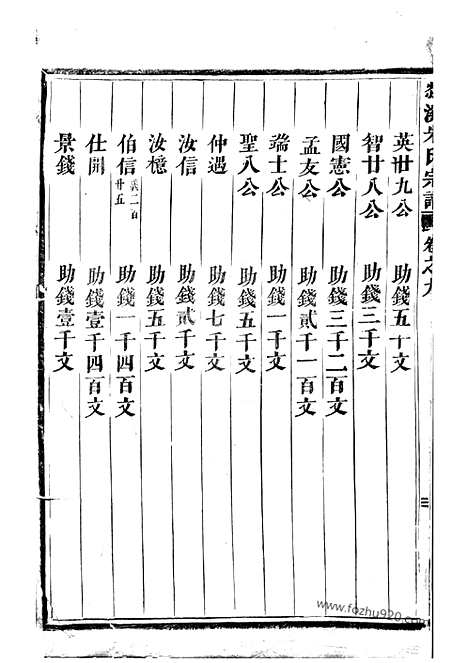 氏宗譜 卷之九
英廿九公 助錢五千文
智廿八公 助錢三千文
國憲公 助錢三千二百文
孟友公 助錢貳千一百文
端士公 助錢一千文
聖八公 助錢五千文
仲遇 助錢七千文
汝信 助錢貳千文
汝檍 助錢五千文
伯信 助錢一千四百文
仕開 助錢壹千四百文
景錢 助錢壹千文
三
www.fozhu920.com